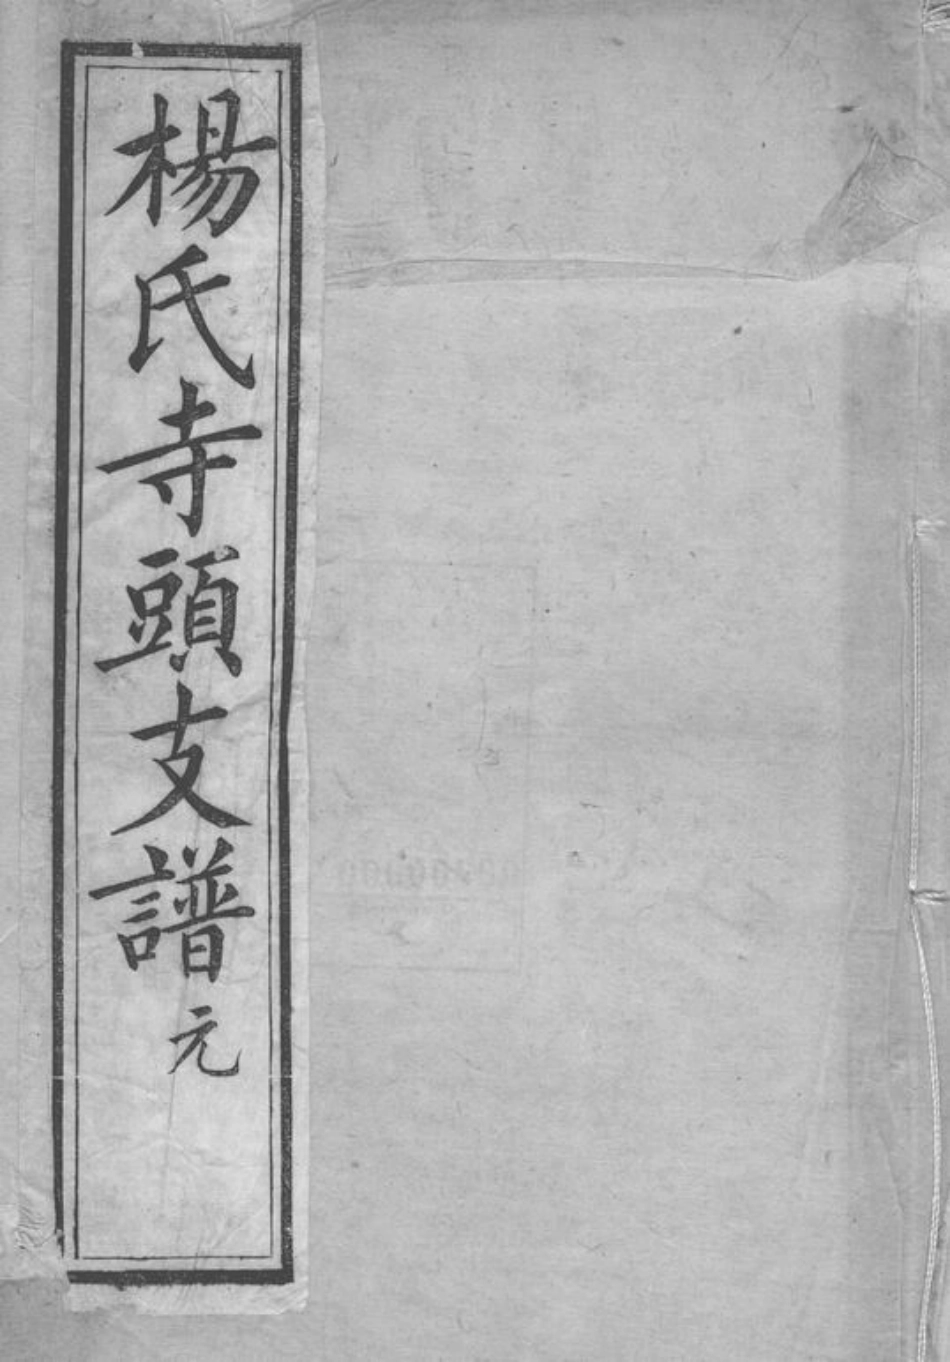 楊氏寺頭支譜 元